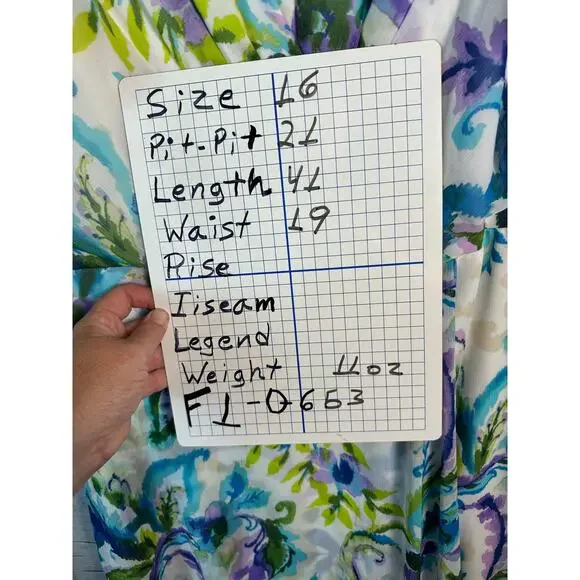 Size 16
Pit-Pit 21
Length 41
Waist 19
Rise
Iiseam
Legend
Weight 11oz
F1-0653